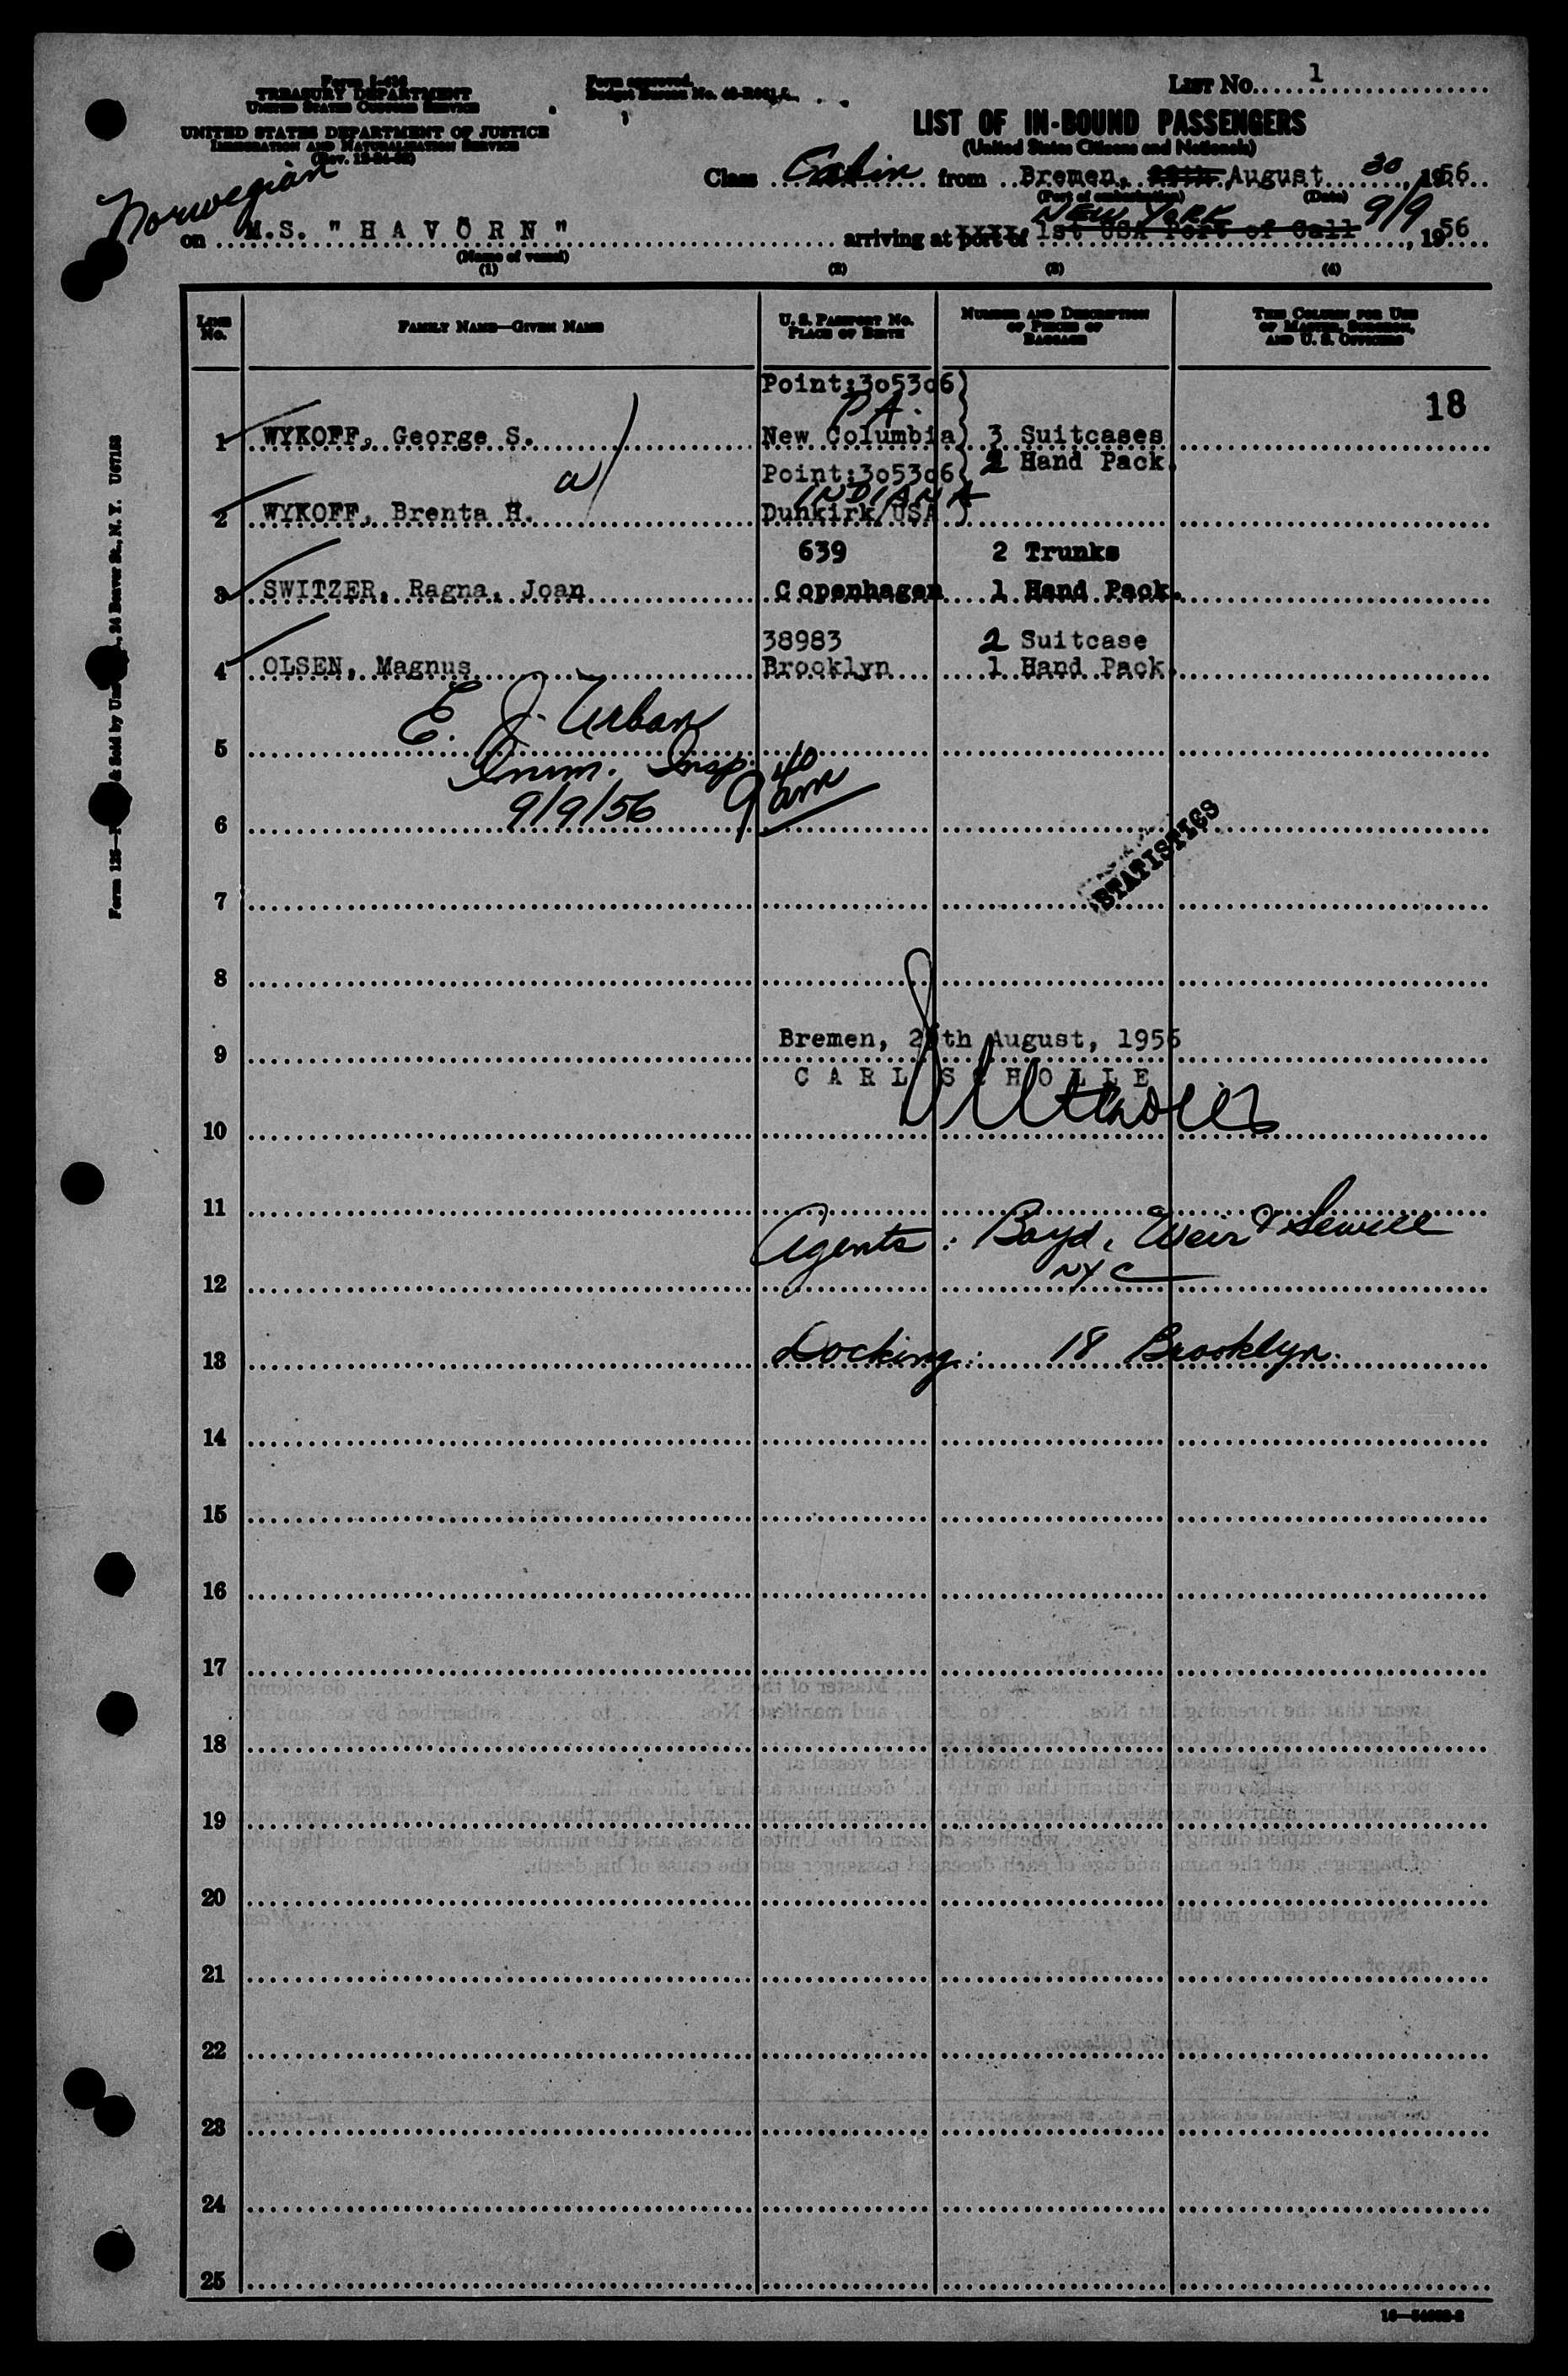 Form I-416
TREASURY DEPARTMENT
UNITED STATES CUSTOMS SERVICE
UNITED STATES DEPARTMENT OF JUSTICE
IMMIGRATION AND NATURALIZATION SERVICE
Form approved.
Budget Bureau No.
LIST No. 1
LIST OF IN-BOUND PASSENGERS
(United States Citizens and Nationals)
Class Cabin from Bremen, August 30, 1956
(Port of embarkation) (Date)
Norwegian
NEW YORK 9/9
on M.S. "HAVÖRN" arriving at port of 1st USA Port of Call, 1956
(Name of vessel)
(1) (2) (3) (4)
LINE No.
FAMILY NAME—GIVEN NAME
U. S. PASSPORT No.
PLACE OF BIRTH
NUMBER AND DESCRIPTION
OF PIECES OF
BAGGAGE
THIS COLUMN FOR USE
OF MASTER, SURGEON,
AND U. S. OFFICERS
Point:3o53o6)
PA.
18
1 WYKOFF, George S. New Columbia) 3 Suitcases
Point:3o53o6( 2 Hand Pack.
INDIANA
2 WYKOFF, Brenta H. Dunkirk/USA )
639 2 Trunks
3 SWITZER, Ragna, Joan Copenhagen 1 Hand Pack.
38983 2 Suitcase
4 OLSEN, Magnus Brooklyn 1 Hand Pack.
E. J. Urban
5
Imm. Insp.
9/9/56 9 40 am
6
STATISTICS
7
8
Bremen, th August, 1956
9
CARL SCHOLLE
10
11
Agents: Boyd, Weir & Sewell
NYC
12
13 Docking: 18 Brooklyn.
14
15
16
17
18
19
20
21
22
23
24
25